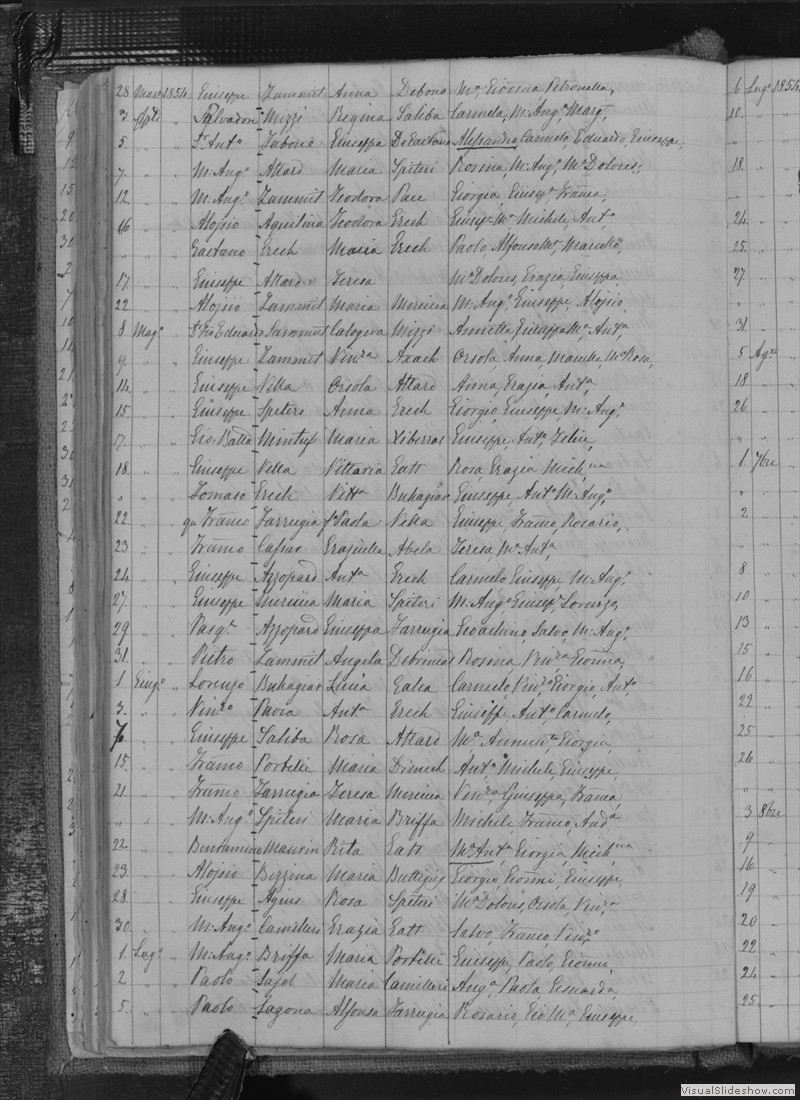 28 Marzo 1854 Giuseppe Zammit Anna Debono Ma Giovna Petronella,
3 Aple " Salvadore Mizzi Regina Saliba Carmela, M: Ango, Margta,
5 " " Sr Anto Zabone Giuseppa DeGaetano Alessandro, Carmelo, Eduardo, Giuseppe,
7 " " M: Ango Attard Maria Spiteri Rosina, M: Ango, Ma Dolores,
12 " " M: Ango Zammit Teodora Pace Giorgia, Giusa, Franca,
16 " " Alojsio Aquilina Teodora Grech Giuspe Ma Michele, Anto,
" " " Gaetano Grech Maria Grech Paolo, Alfonso Ma, Marcello,
17 " " Giuseppe Attard Teresa Ma Dolores, Grazia, Giuseppa,
22 " " Alojsio Zammit Maria Mercieca M: Ango, Giuseppe, Alojsio,
8 Mago " Sr Eduardo Sammut Calogera Mizzi Annetta, Giuseppa Ma, Anta,
9 " " Giuseppe Zammit Vinza Axach Orsola, Anna, Marcella, Ma Rosa,
14 " " Giuseppe Vella Orsola Attard Anna, Grazia, Anta,
15 " " Giuseppe Spiteri Anna Grech Giorgio, Giuseppe, M: Ango,
17 " " Gio: Batta Mintuf Maria Xiberras Giuseppe, Anto, Felice,
18 " " Giuseppe Vella Vittoria Gatt Rosa, Grazia, Michna
" " " Tomaso Grech Vitta Buhagiar Giuseppe, Anto, M: Ango,
22 " " qm Franco Farrugia fa Paola Vella Giuseppe, Franco, Rosario,
23 " " Franco Caspar Graziulla Abela Teresa, Ma Anta,
24 " " Giuseppe Azzopard Anta Grech Carmelo, Giuseppe, M: Ango,
27 " " Giuseppe Mercieca Maria Spiteri M: Ango, Giuspe, Lorenzo,
29 " " Pasqe Azzopard Giuseppa Farrugia Gioachino, Salvo, M: Ango,
31 " " Pietro Zammit Angela Debrincat Rosina, Vinza, Gionna,
1 Giugo " Lorenzo Buhagiar Lucia Galea Carmelo, Vinzo, Giorgio, Anto
3 " " Vinzo Pavia Anta Grech Giuseppe, Anto, Carmelo,
7 " " Giuseppe Saliba Rosa Attard Ma Annunta, Giorgia,
15 " " Franco Portelli Maria Dimech Anto, Michele, Giuseppe,
21 " " Franco Farrugia Teresa Mercieca Vinza, Giuseppa, Franca,
" " " M: Ango Spiteri Maria Briffa Michele, Franco, Anda
22 " " Beniamino Mausin Rita Gatt Ma Anta, Giorgia, Michna
23 " " Alojsio Bezzina Maria Buttigieg Giorgio, Gionni, Giuseppe,
28 " " Giuseppe Agius Rosa Spiteri Ma Dolores, Orsola, Vinza
30 " " M: Ango Camilleri Grazia Gatt Salvo, Franco, Vinzo
1 Lugo " M: Ango Briffa Maria Portelli Giuseppe, Paolo, Gionni,
2 " " Paolo Sajd Maria Camilleri Anga, Paola,
5 " " Paolo Lagona Alfonsa Farrugia Rosario, Gio: Ma, Giuseppe,
6 Lugo 1854
10 " "
" " "
18 " "
24 " "
25 " "
27 " "
" " "
31 " "
5 Agto "
18 " "
26 " "
" " "
1 7bre "
" " "
2 " "
" " "
8 " "
10 " "
13 " "
15 " "
16 " "
22 " "
25 " "
26 " "
" " "
3 8bre
9 " "
16 " "
19 " "
20 " "
22 " "
24 " "
25 " "
VisualSlideshow.com